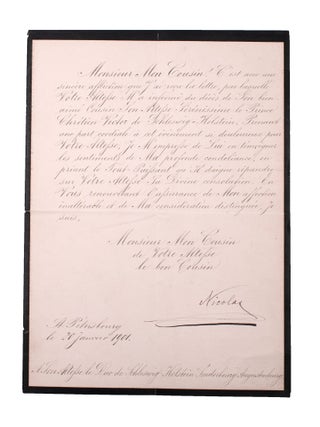 Monsieur Mon Cousin! C'est avec une
sincère affliction que J'ai reçu la lettre, par laquelle
Votre Altesse M'a informé du décès de Son bien
aimé Cousin Son Altesse Sérénissime le Prince
Chrétien Victor de Schleswig-Holstein. Prenant
une part cordiale à cet événement si douloureux pour
Votre Altesse, Je M'empresse de Lui en témoigner
les sentiments de Ma profonde condoléance, en
priant le Tout-Puissant qu'Il daigne répandre
sur Votre Altesse Sa Divine consolation. En
Vous renouvelant l'assurance de Mon affection
inaltérable et de Ma considération distinguée, Je
suis,
Monsieur Mon Cousin
de Votre Altesse
le bon Cousin
Nicolas
A Pétersbourg
le Janvier 1901.
A Son Altesse le Duc de Schleswig Holstein Sonderbourg Augustenbourg